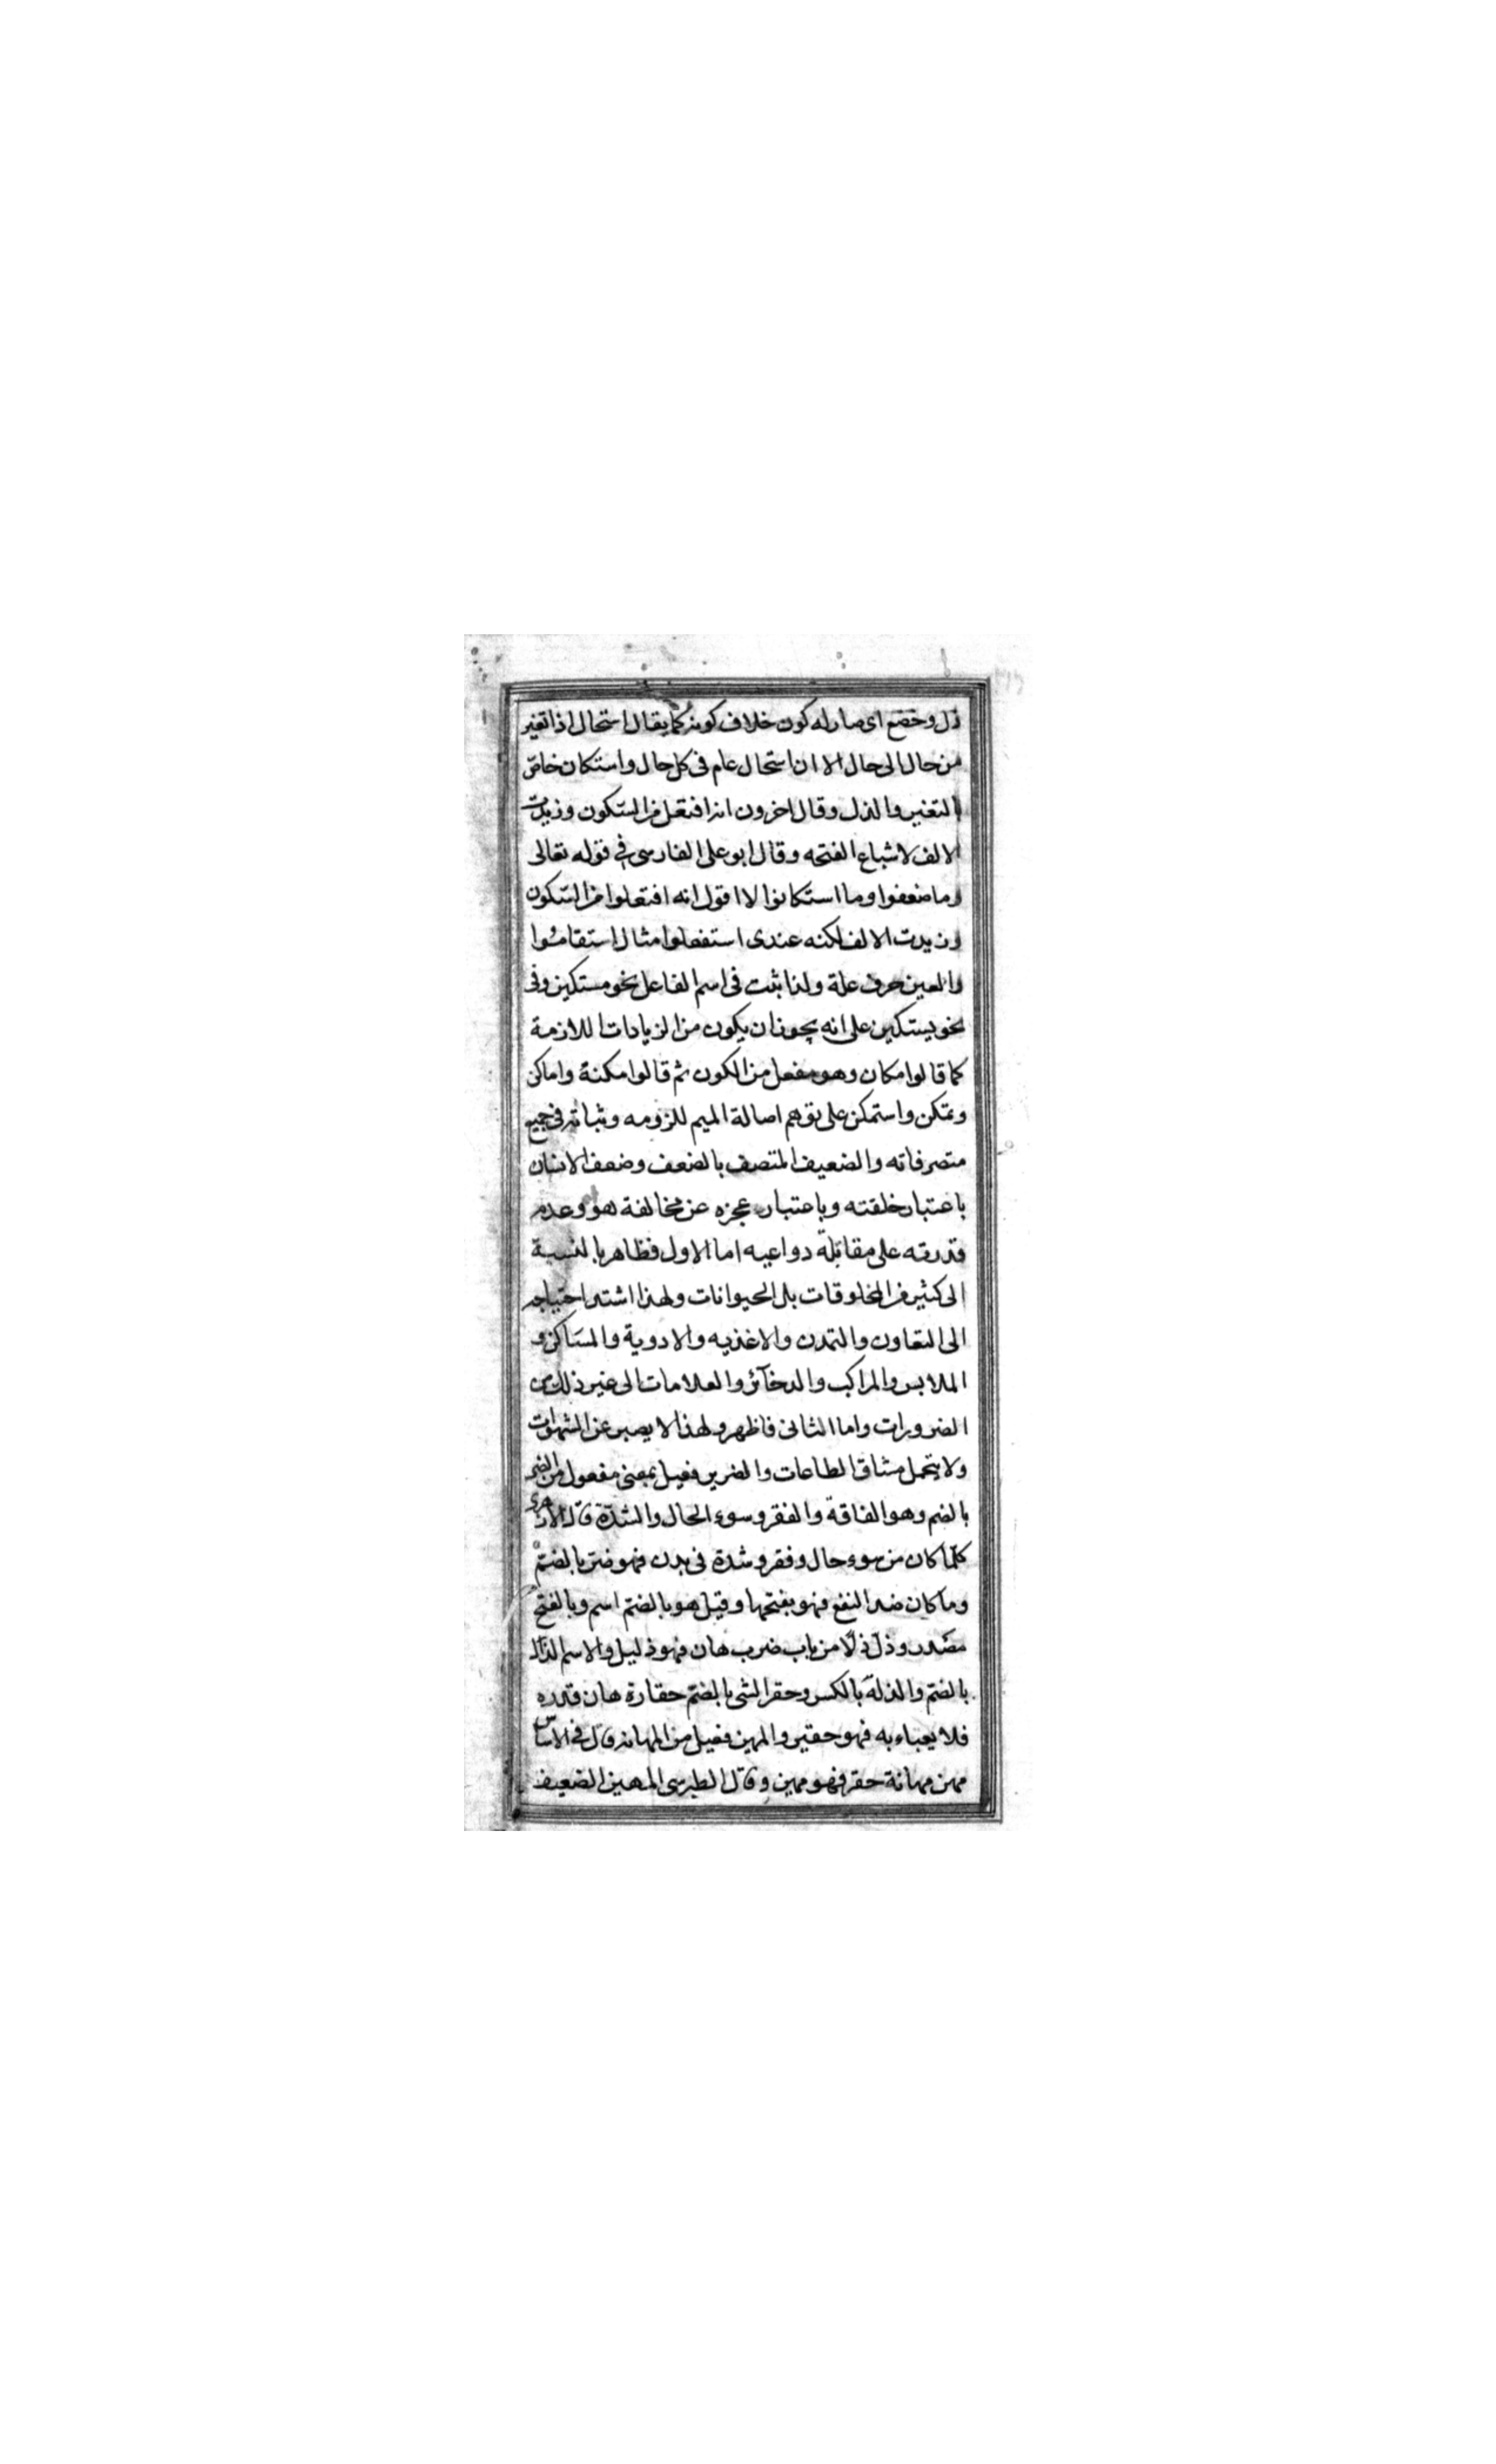 ذل وخضع اى صار له كون خلاف كونه كما يقال استحال اذا تغير
من حال الى حال الا ان استحال عام فى كل حال واستكان خاص
بالتغير والذل وقال اخرون انه افتعل من السكون وزيدت
الالف لاشباع الفتحه وقال ابو على الفارسى فى قوله تعالى
وما ضعفوا وما استكانوا لا اقول انه افتعلوا من السكون
وزيدت الالف لكنه عندى استفعلوا مثال استقاموا
والعين حرف علة ولذا ثبت فى اسم الفاعل نحو مستكين وفى
نحو يستكين على انه يجوز ان يكون من الزيادات اللازمة
كما قالوا مكان وهو مفعل من الكون ثم قالوا امكنة واماكن
وتمكن واستمكن على توهم اصالة الميم للزومه وثباته فى جميع
متصرفاته والضعيف المتصف بالضعف وضعف الانسان
باعتبار خلقته وباعتبار عجزه عن مخالفة هواه وعدم
قدرته على مقابلة دواعيه اما الاول فظاهر بالنسبة
الى كثير من المخلوقات بل الحيوانات ولهذا اشتد احتياجه
الى التعاون والتمدن والاغذيه والادوية والمساكن و
الملابس والمراكب والدخآئر والعلامات الى غير ذلك من
الضرورات واما الثانى فاظهر ولهذا لا يصبر عن الشهوات
ولا يتحمل مشاق الطاعات والضرير فعيل بمعنى مفعول من الضر
بالضم وهو الفاقة والفقر وسوء الحال والشدة قال الازهرى
كلما كان من سوء حال وفقر وشدة فى بدن فهو ضر بالضم
وما كان ضد النفع فهو بفتحها وقيل هو بالضم اسم وبالفتح
مصدر وذل ذلا من باب ضرب هان فهو ذليل والاسم الذل
بالضم والذلة بالكسر وحقر الشى بالضم حقارة هان قدره
فلا يعباء به فهو حقير والمهين فعيل من المهانه قال فى الاساس
مهن مهانة حقر فهو مهين وقال الطبرسى المهين الضعيف